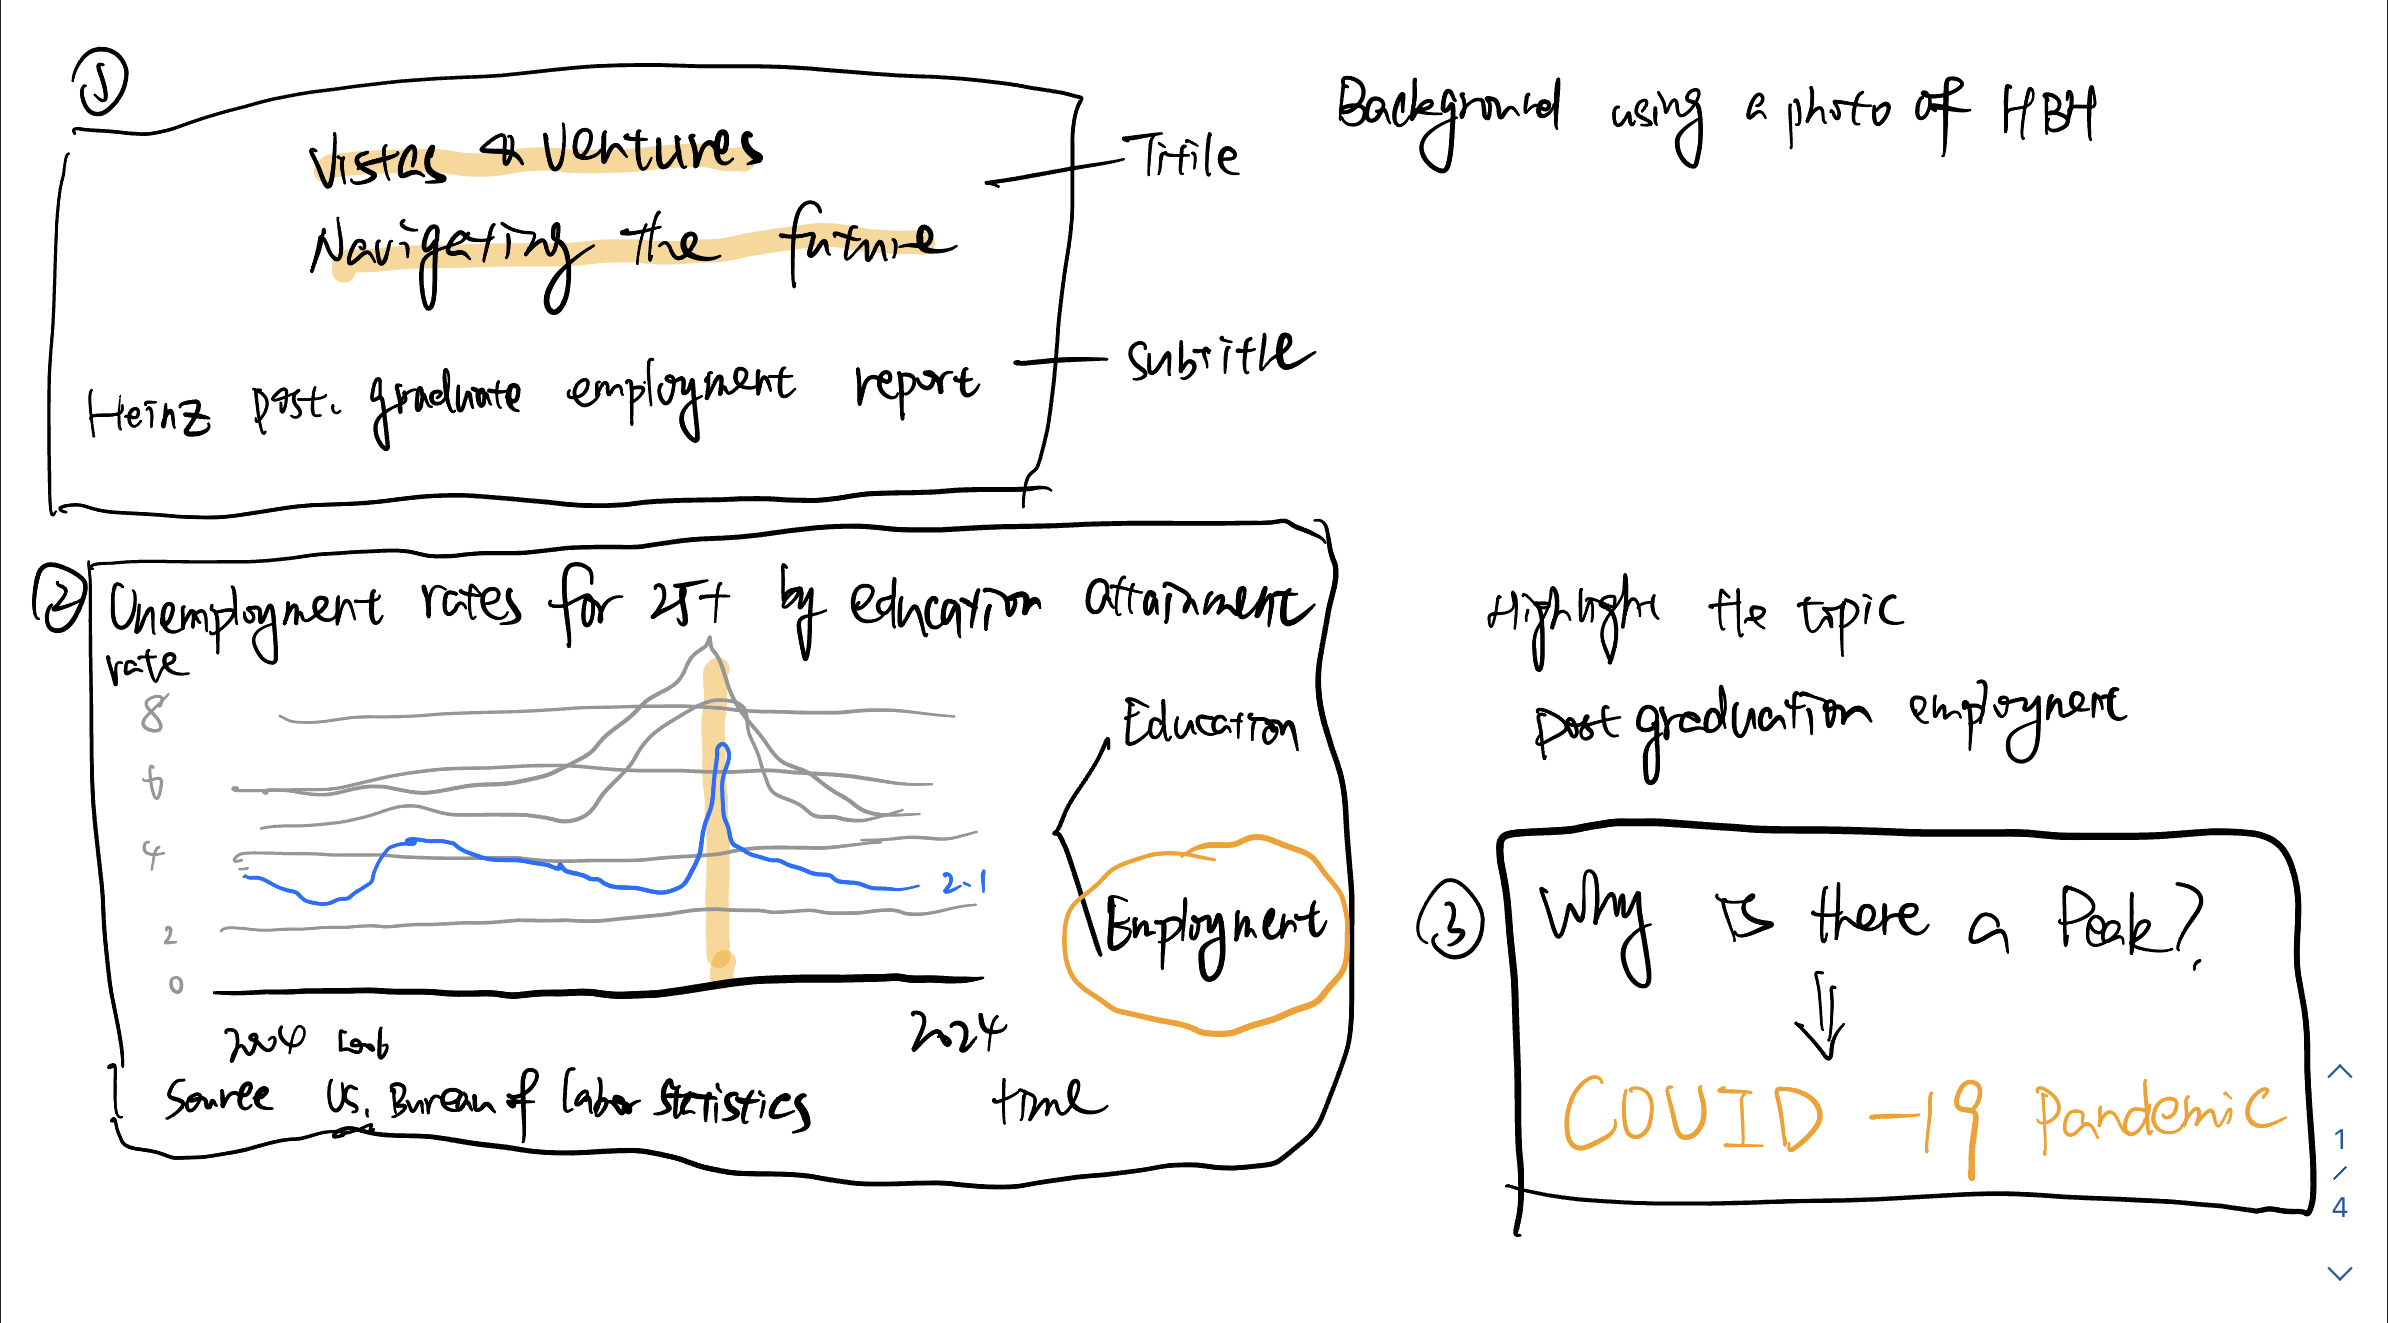 1
Vistas & Ventures
Navigating the future
Heinz post. graduate employment report
Titile
Subtitle
Background using a photo of HBH
2
Unemployment rates for 25+ by education attainment
rate
8
6
4
2
0
2.1
2004
2024
time
Source US. Bureau of Labor Statistics
Education
Employment
Highlight the topic
post graduation employment
3
Why is there a Peak?
COVID-19 Pandemic
1
/
4